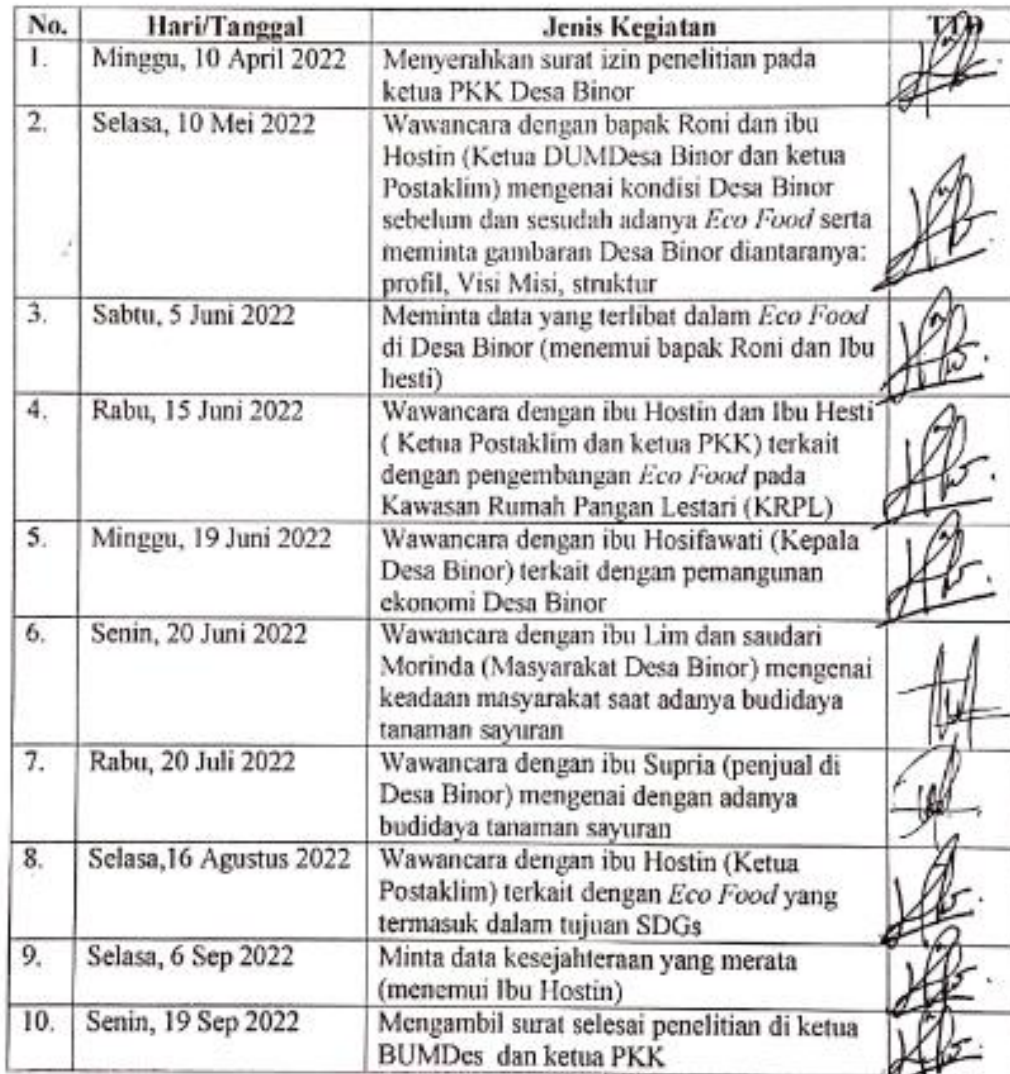 No. Hari/Tanggal Jenis Kegiatan TTD
1. Minggu, 10 April 2022 Menyerahkan surat izin penelitian pada
ketua PKK Desa Binor
2. Selasa, 10 Mei 2022 Wawancara dengan bapak Roni dan ibu
Hostin (Ketua DUMDesa Binor dan ketua
Postaklim) mengenai kondisi Desa Binor
sebelum dan sesudah adanya Eco Food serta
meminta gambaran Desa Binor diantaranya:
profil, Visi Misi, struktur
3. Sabtu, 5 Juni 2022 Meminta data yang terlibat dalam Eco Food
di Desa Binor (menemui bapak Roni dan Ibu
hesti)
4. Rabu, 15 Juni 2022 Wawancara dengan ibu Hostin dan Ibu Hesti
( Ketua Postaklim dan ketua PKK) terkait
dengan pengembangan Eco Food pada
Kawasan Rumah Pangan Lestari (KRPL)
5. Minggu, 19 Juni 2022 Wawancara dengan ibu Hosifawati (Kepala
Desa Binor) terkait dengan pemangunan
ekonomi Desa Binor
6. Senin, 20 Juni 2022 Wawancara dengan ibu Lim dan saudari
Morinda (Masyarakat Desa Binor) mengenai
keadaan masyarakat saat adanya budidaya
tanaman sayuran
7. Rabu, 20 Juli 2022 Wawancara dengan ibu Supria (penjual di
Desa Binor) mengenai dengan adanya
budidaya tanaman sayuran
8. Selasa,16 Agustus 2022 Wawancara dengan ibu Hostin (Ketua
Postaklim) terkait dengan Eco Food yang
termasuk dalam tujuan SDGs
9. Selasa, 6 Sep 2022 Minta data kesejahteraan yang merata
(menemui Ibu Hostin)
10. Senin, 19 Sep 2022 Mengambil surat selesai penelitian di ketua
BUMDes dan ketua PKK